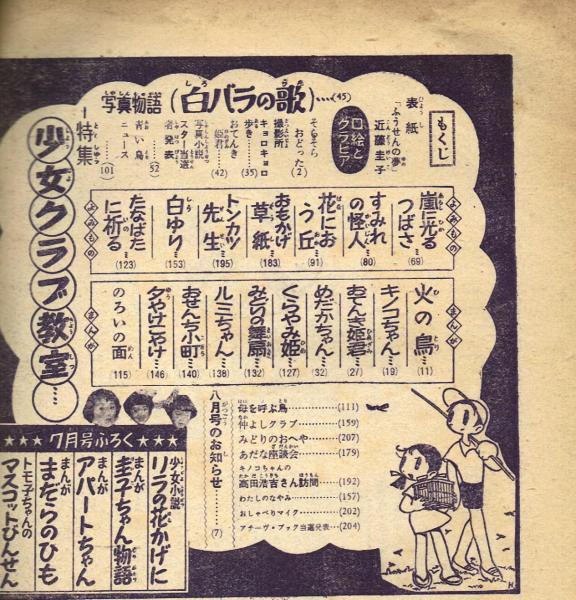 もくじ
表紙
「ふうせんの夢」
近藤圭子
口絵と
グラビア
そらそら
おどった(2)
撮影所
キョロキョロ
歩き…(35)
おてんき
姫君…(42)
写真小説
スター当選
者発表…(52)
青い鳥
ニュース…(101)
写真物語(白バラの歌)…(45)
よみもの
嵐に光る
つばさ…(69)
すみれ
の怪人…(80)
花にお
う丘…(91)
おもかげ
草紙…(183)
トンカツ
先生…(195)
白ゆり…(153)
たなばた
に祈る(123)
まんが
火の鳥…(11)
キノコちゃん…(19)
おてんき姫君…(27)
めだかちゃん…(32)
くらやみ姫…(127)
みどりの舞扇…(132)
ルミちゃん…(138)
おせんち小町…(140)
夕やけこやけ…(146)
のろいの面 115
特集
少女クラブ教室…
母を呼ぶ鳥…(111)
仲よしクラブ…(159)
みどりのおへや…(207)
あだな座談会…(179)
キノコちゃんの
高田浩吉さん訪問…(192)
わたしのなやみ…(157)
おしゃべりマイク…(202)
アチーヴ・ブック当選発表…(204)
八月号のお知らせ……(7)
★★★7月号ふろく★★★
少女小説
リラの花かげに
まんが
圭子ちゃん物語
まんが
アパートちゃん
まんが
まだらのひも
トモ子ちゃんの
マスコットびんせん